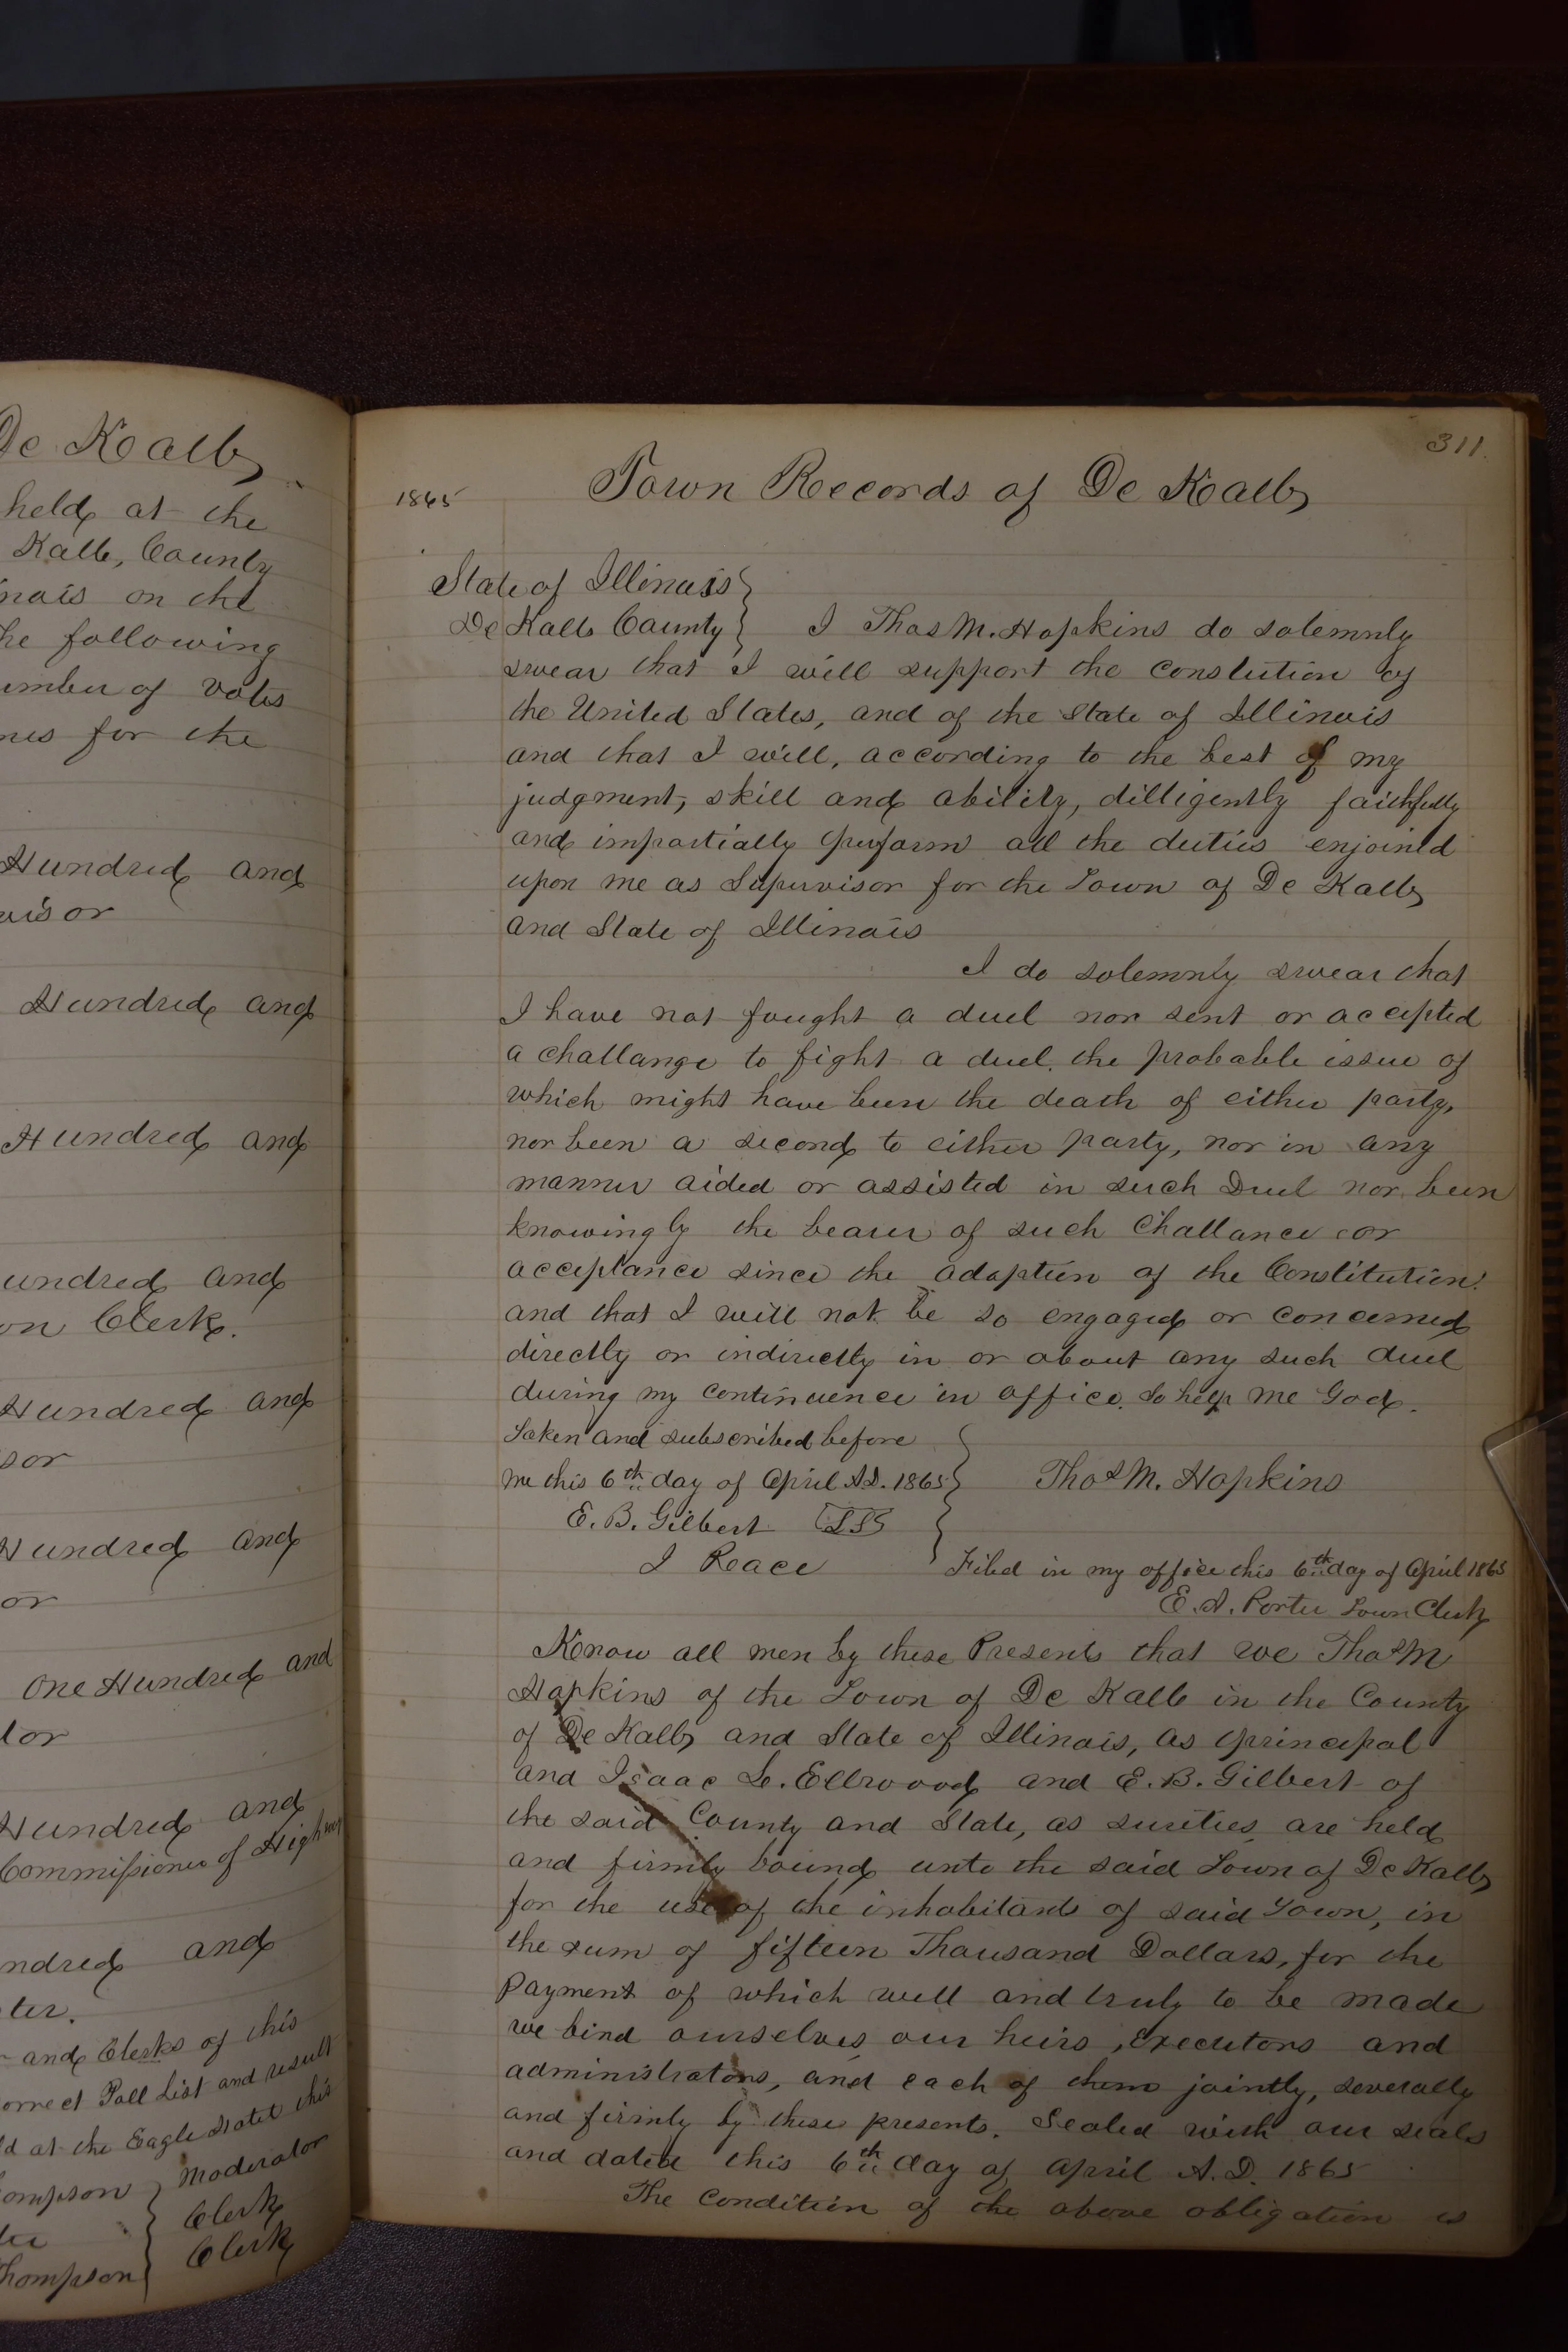 De Kalb
held at the
Kalb, County
nois on the
he following
umber of votes
mes for the
Hundred and
visor
Hundred and
Hundred and
undred and
on Clerk.
Hundred and
sor
Hundred and
or
One Hundred and
tor
Hundred and
Commissioner of Highway
ndred and
ter.
and Clerks of this
orrect Poll List and result
ld at the Eagle Hotel this
ompson } Moderator
Clerk
Thompson } Clerk
311.
1865 Town Records of De Kalb
State of Illinois }
De Kalb County } I Thos M. Hopkins do solemnly
swear that I will support the Constution of
the United States, and of the State of Illinois
and that I will, according to the best of my
judgment, skill and ability, dilligently faithfully
and impartially perform all the duties enjoined
upon me as Supervisor for the Town of De Kalb
and State of Illinois
I do solemnly swear that
I have not fought a duel nor sent or accepted
a challange to fight a duel, the probable issue of
which might have been the death of either party,
nor been a second to either party, nor in any
manner aided or assisted in such Duel nor been
knowingly the bearer of such Challance or
acceptance since the adoption of the Constitution:
and that I will not be so engaged or concerned
directly or indirectly in or about any such duel
during my continuence in office. So help me God.
Taken and subscribed before }
me this 6th day of April A.D. 1865 } Thos M. Hopkins
E. B. Gilbert LS }
J Peace Filed in my office this 6th day of April 1865
E. A. Porter Town Clerk
Know all men by these Presents that we Thos M
Hopkins of the Town of De Kalb in the County
of De Kalb and State of Illinois, as principal
and Isaac L. Ellwood and E. B. Gilbert of
the said County and State, as sureties are held
and firmly bound unto the said Town of De Kalb
for the use of the inhabitants of said Town, in
the sum of fifteen Thousand Dollars, for the
Payment of which well and truly to be made
we bind ourselves our heirs, executors and
administrators, and each of them jointly, severally
and firmly by these presents. Sealed with our seals
and dated this 6th day of April A.D. 1865
The Condition of the above obligation is